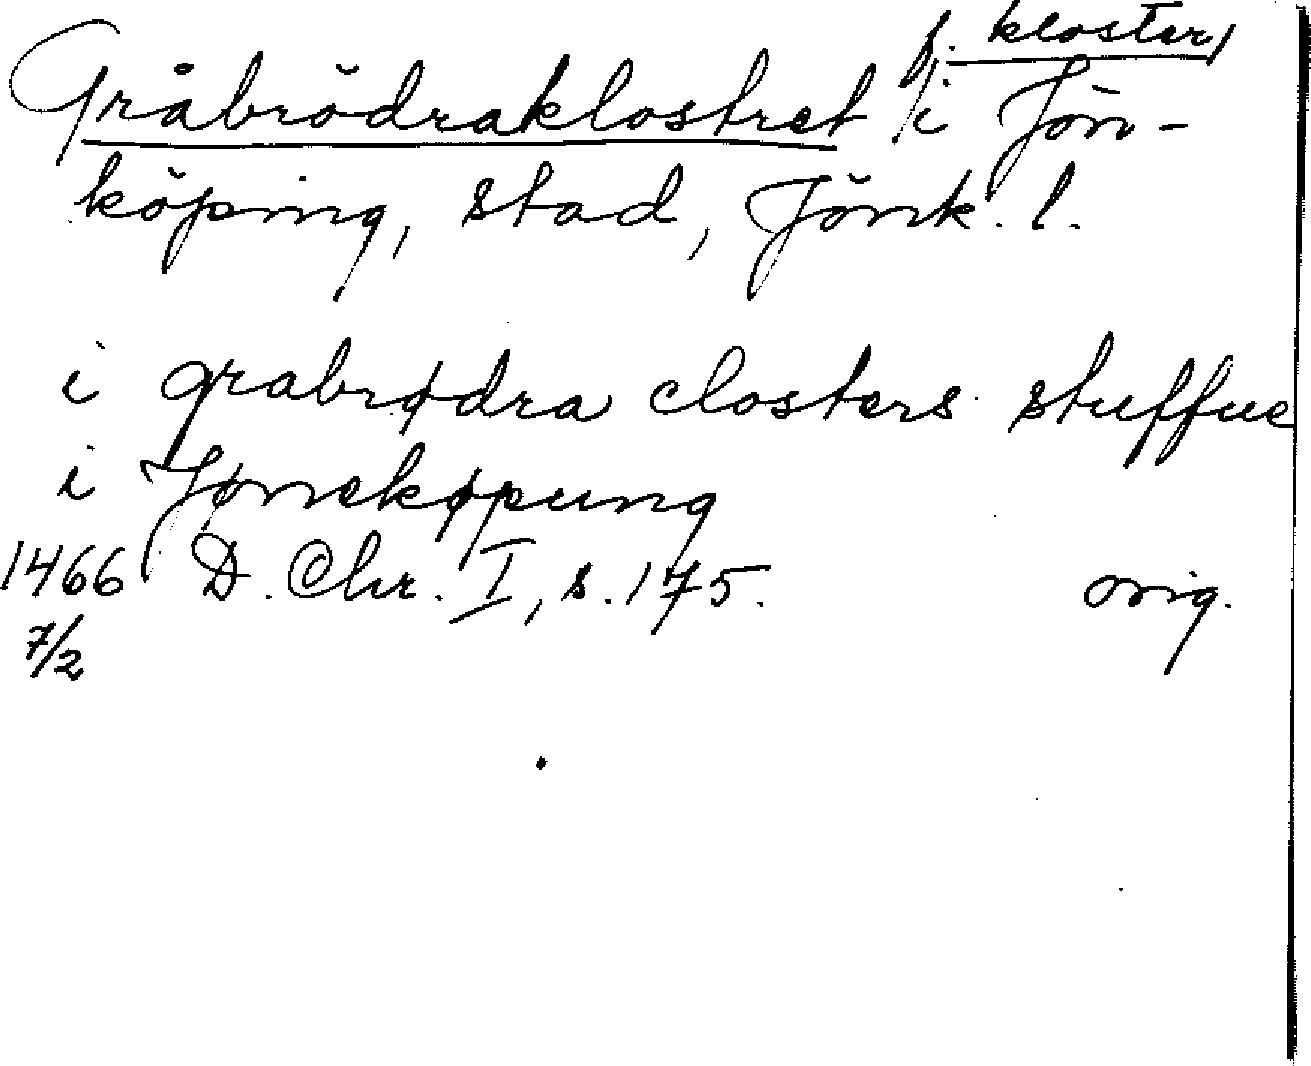 f. kloster,
Gråbrödraklostret i Jön-
köping, stad, Jönk. l.
i grabrødra closters stuffue
i Jønekøpung
1466 D. Chr. I, s. 175. orig.
7/2